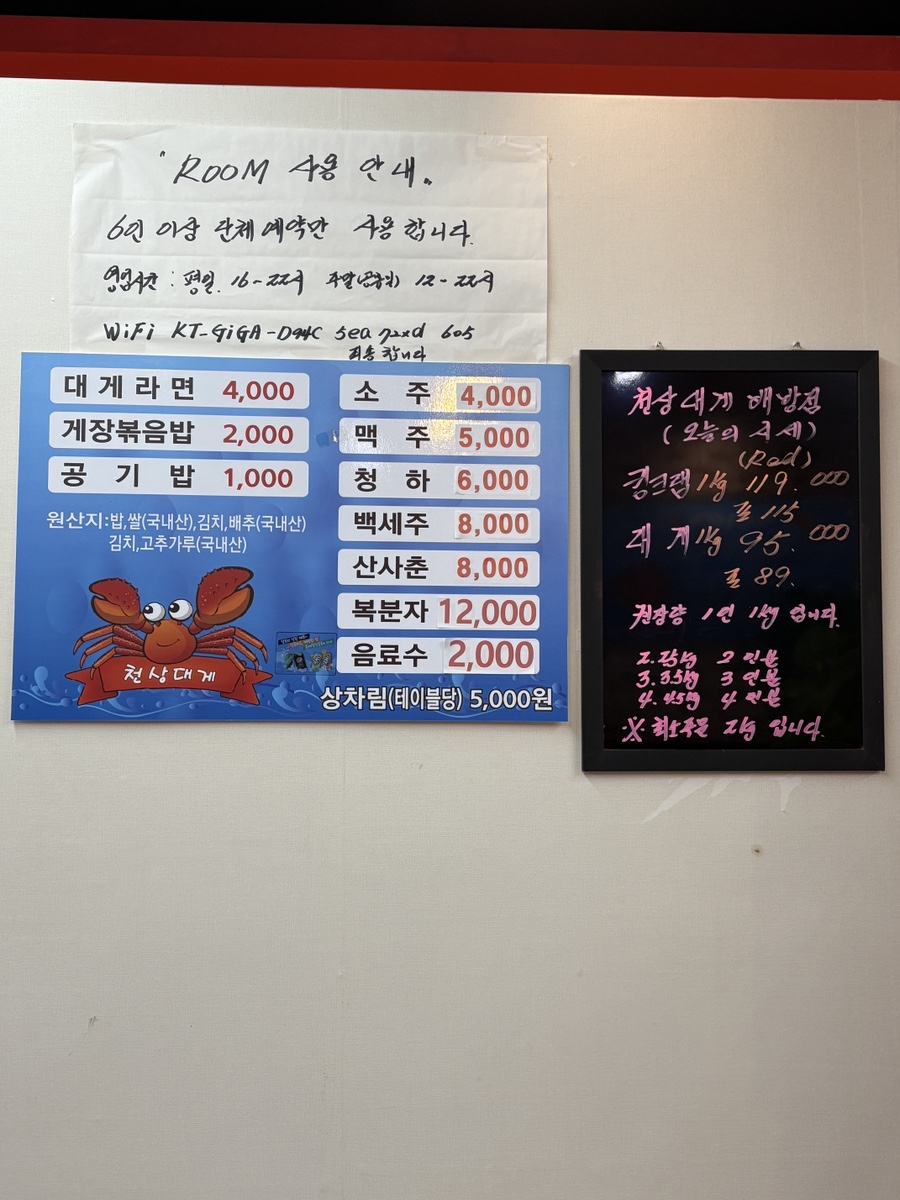 "ROOM 사용 안내"
6인 이상 단체예약만 사용합니다.
영업시간 : 평일 16-22시 주말(공휴일) 12-22시
WiFi KT-GiGA-D94C
죄송합니다
대게라면 4,000
게장볶음밥 2,000
공기밥 1,000
원산지:밥,쌀(국내산),김치,배추(국내산)
김치,고추가루(국내산)
천상대게
소주 4,000
맥주 5,000
청하 6,000
백세주 8,000
산사춘 8,000
복분자 12,000
음료수 2,000
상차림(테이블당) 5,000원
천상대게 해방점
(오늘의 시세)
(Red)
킹크랩 1kg 119.000
포 115
대게 1kg 95.000
포 89.
권장량 1인 1kg 입니다.
2인분
3. 3.5kg 3인분
4. 4.5kg 4인분
※ 최소주문 2kg 입니다.